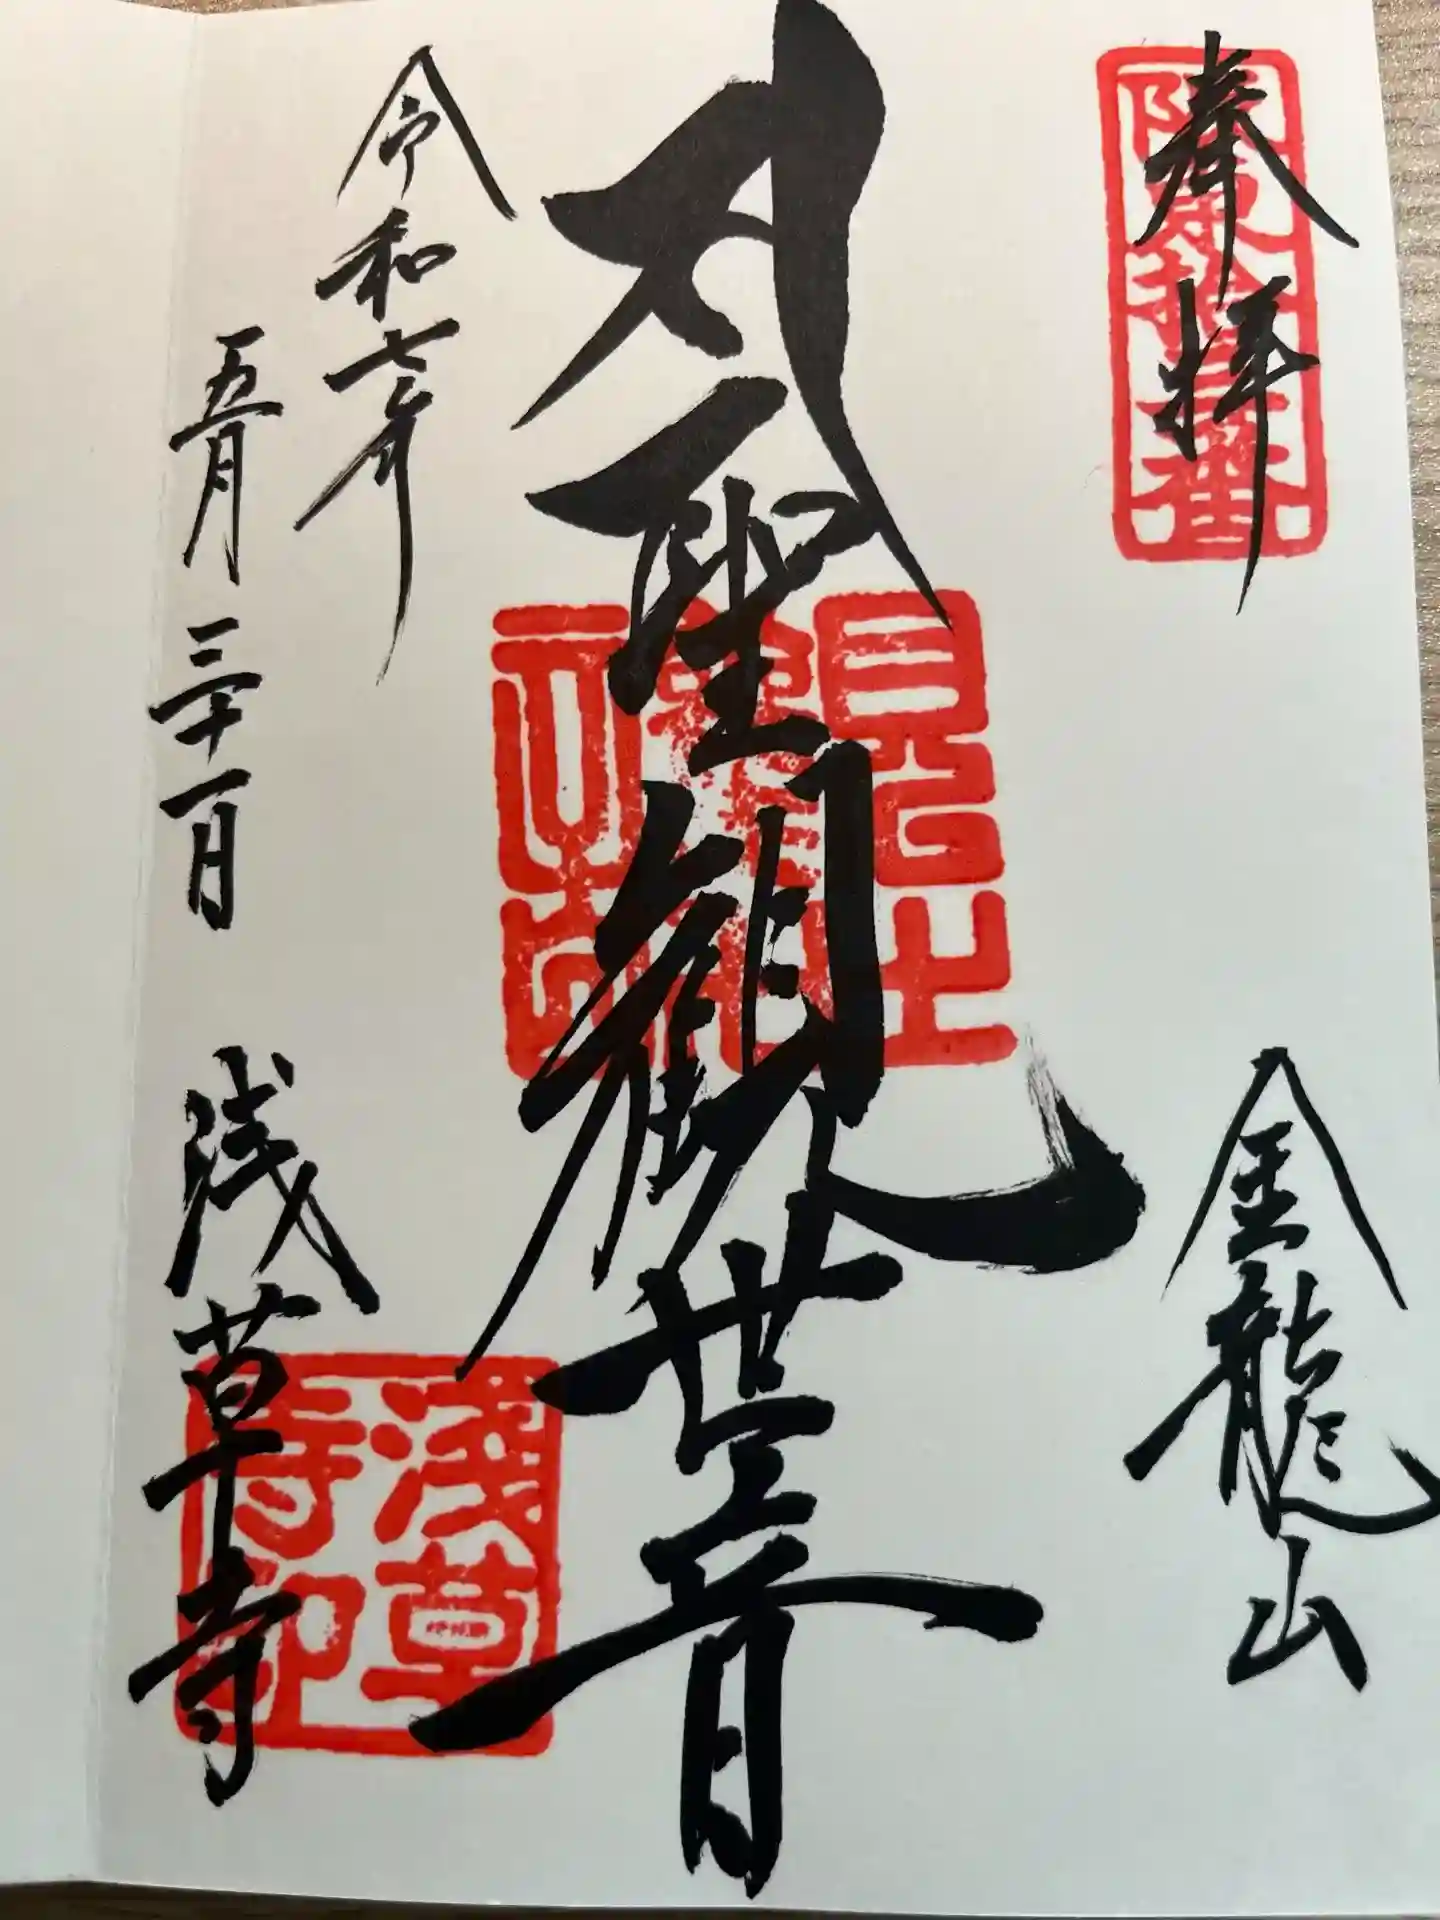 奉拝
坂東拾三番
金龍山
聖観世音
令和七年
五月三十一日
浅草寺
浅草寺印